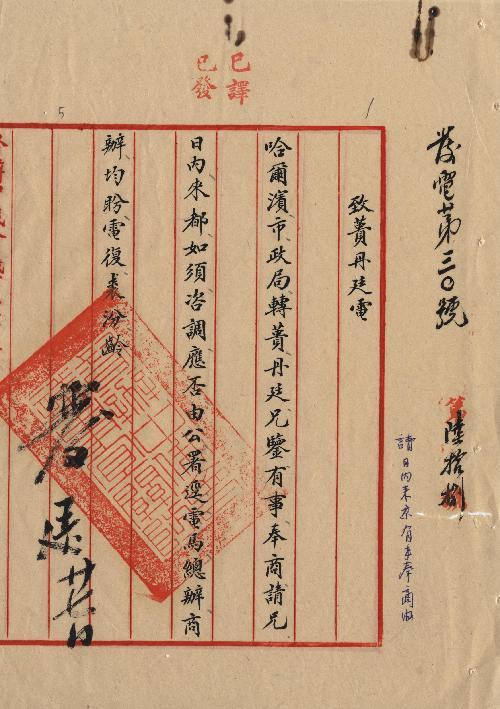 已譯
已發
發電第三〇號
陸拾捌
請日內來京有事奉商由
致蕢丹廷電
哈爾濱市政局轉蕢丹廷兄鑒有事奉商請兄
日內來都如須咨調應否由公署逕電馬總辦商
辦均盼電復裘汾齡
廿七日